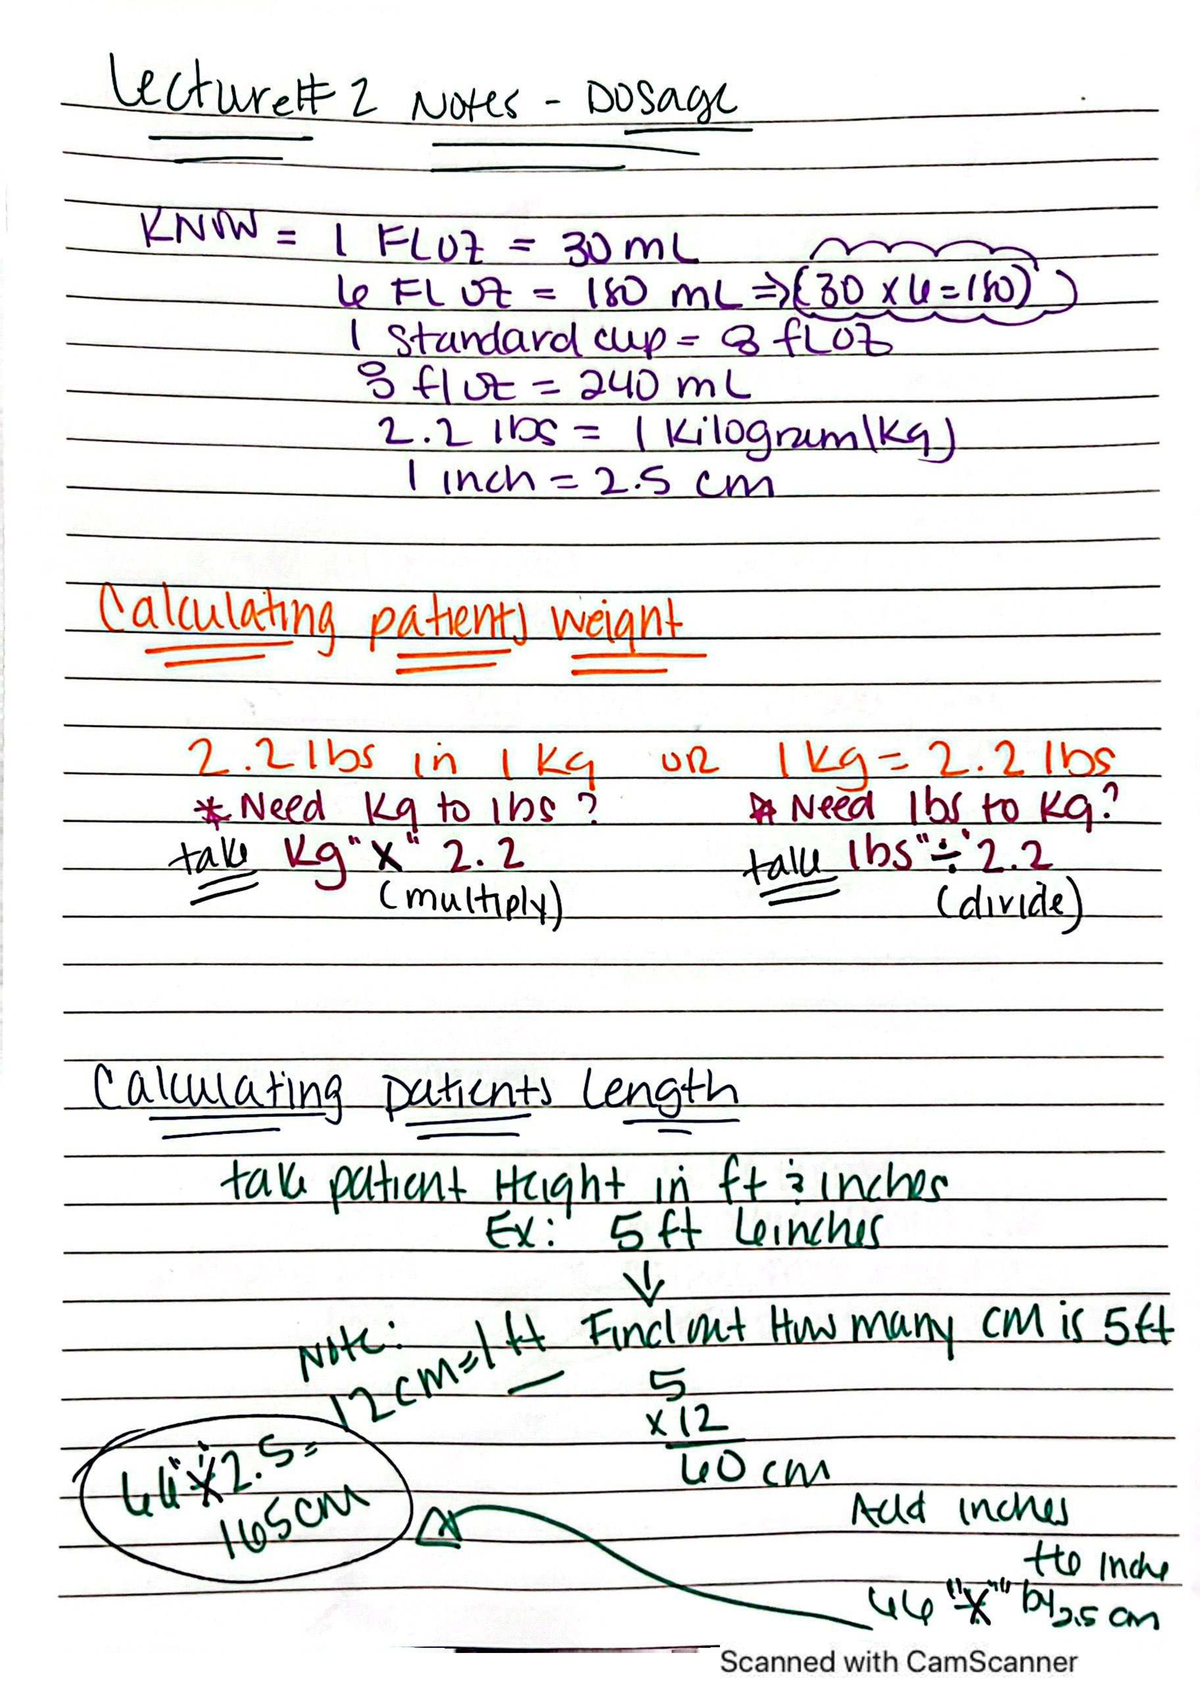 Lecture# 2 Notes - Dosage
KNOW = 1 FLOZ = 30 mL
6 FL OZ = 180 mL => (30 x 6 = 180)
1 standard cup = 8 fLOZ
8 fl oz = 240 mL
2.2 lbs = 1 Kilogram (kg)
1 inch = 2.5 cm
Calculating patients weight
2.2 lbs in 1 kg OR 1 kg = 2.2 lbs
* Need kg to lbs ? * Need lbs to kg?
take kg "x" 2.2 take lbs "÷" 2.2
(multiply) (divide)
Calculating patients Length
take patient Height in ft & inches
Ex: 5 ft 6 inches
↓
Note: 12 cm = 1 ft Find out How many cm is 5 ft
5
x 12
60 cm
66 "x" 2.5 =
165 cm
Add inches
to inche
66 "x" by 2.5 cm
Scanned with CamScanner